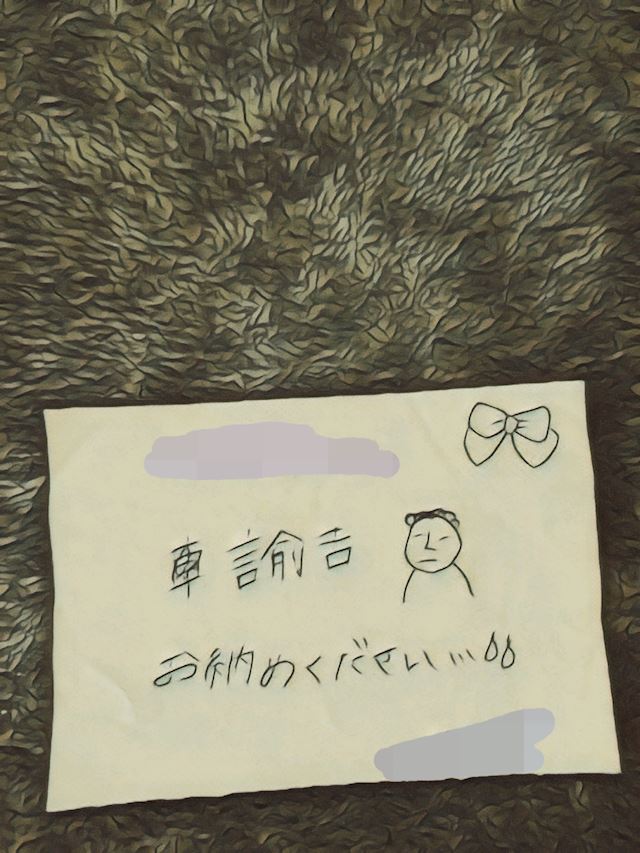 車 諭吉
お納めください…